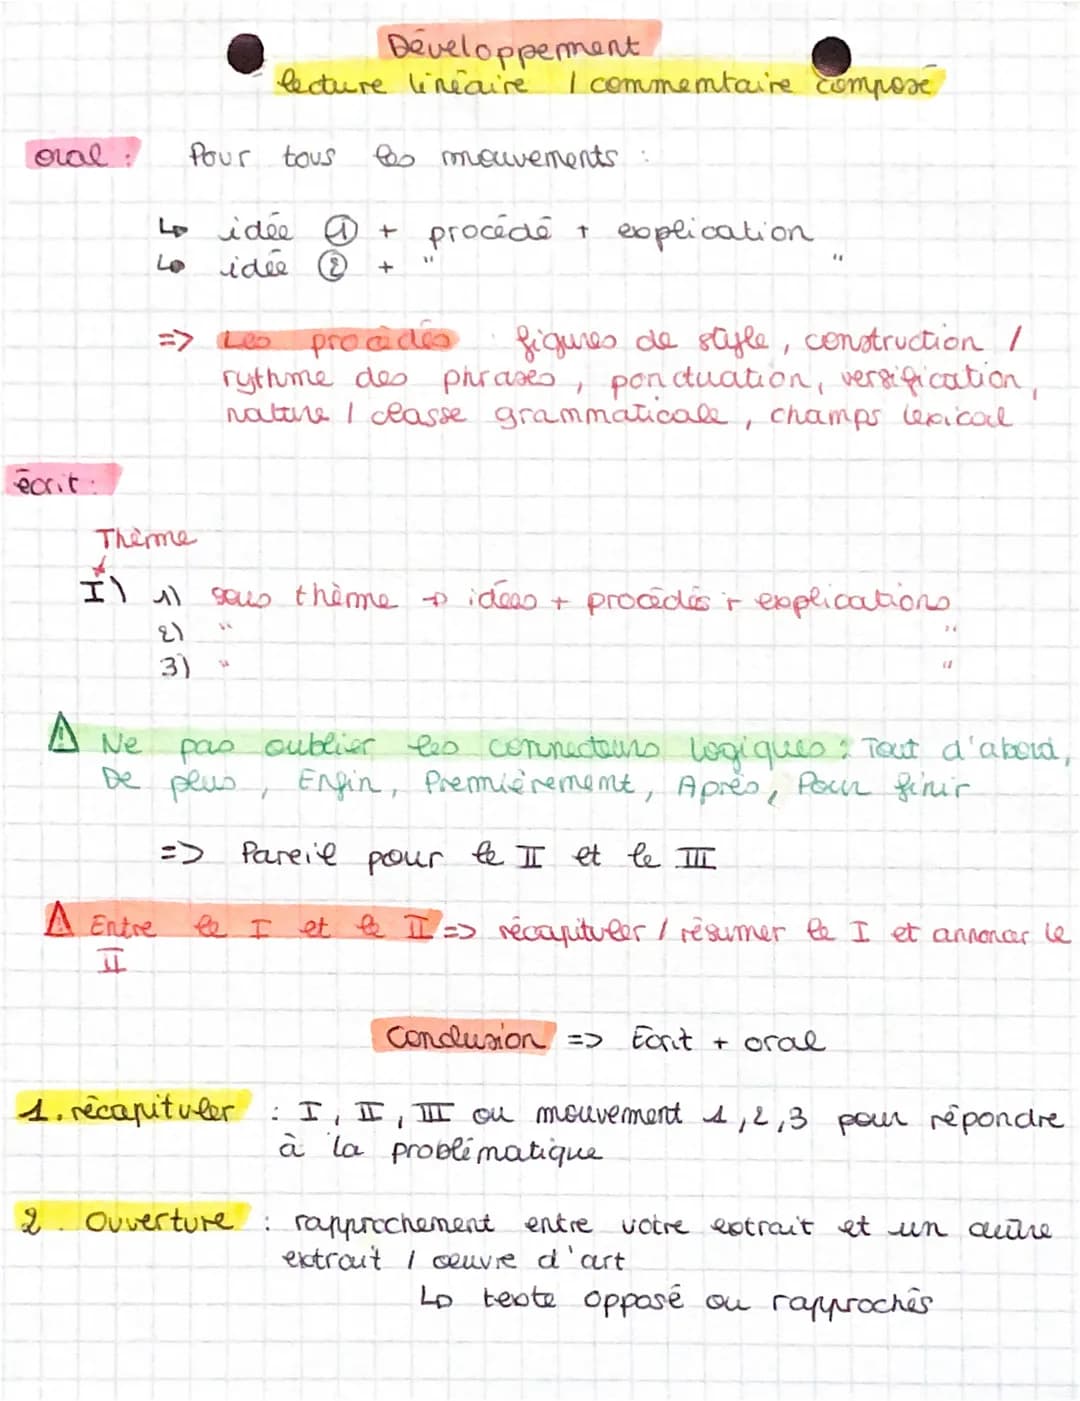 Développement
lecture linéaire / commentaire composé
oral : Pour tous les mouvements :
↳ idée ① + procédé + explication
↳ idée ② + " "
=> Les procédés : figures de style, construction /
rythme des phrases, ponctuation, versification,
nature / classe grammaticale, champs lexical
écrit :
Thème
I) 1) sous thème → idées + procédés + explications
2) " "
3) " "
⚠ Ne pas oublier les connecteurs logiques : Tout d'abord,
De plus, Enfin, Premièrement, Après, Pour finir
=> Pareil pour le II et le III
⚠ Entre le I et le II => récapituler / résumer le I et annoncer le
II
Conclusion => Ecrit + oral
1. récapituler : I, II, III ou mouvement 1, 2, 3 pour répondre
à la problématique
2. Ouverture : rapprochement entre votre extrait et un autre
extrait / oeuvre d'art
↳ texte opposé ou rapprochés